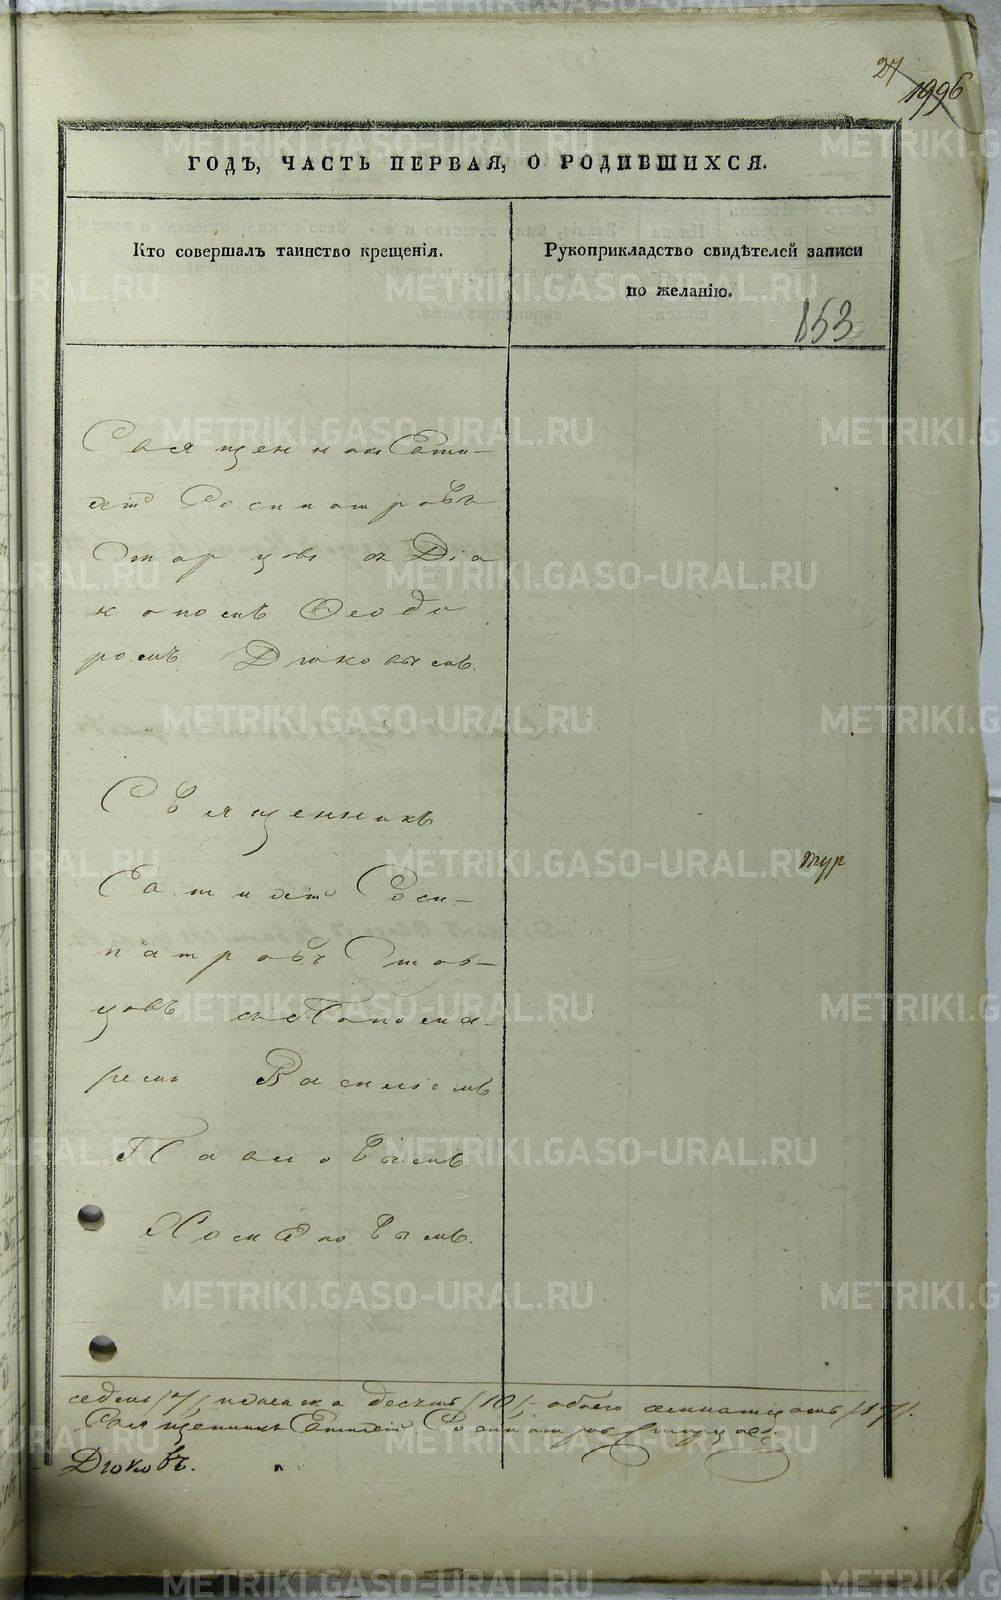 27
1996
ГОДЪ, ЧАСТЬ ПЕРВАЯ, О РОДИВШИХСЯ.
Кто совершалъ таинство крещенія.
Рукоприкладство свидѣтелей записи
по желанію.
153
Священникъ
патровъ
Старцовъ съ Діа
кономъ Ѳеодо
ромъ Дюковымъ.
Священникъ
патровъ Стар-
цовъ съ Понома-
ремъ Василіемъ
Павловымъ
тур
седмь /7/, женска десять /10/, обоего семнатцать /17/.
Священникъ Старцовъ.
Дюковъ.
METRIKI.GASO-URAL.RU